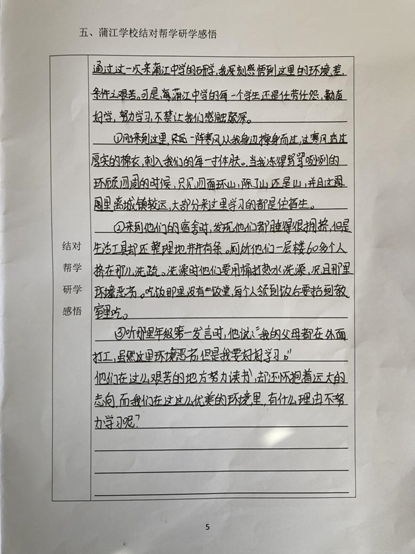 五、蒲江学校结对帮学研学感悟
结对
帮学
研学
感悟
通过这一次来蒲江中学的研学,我深刻感悟到这里的环境差,
条件之艰苦,可是蒲江中学的每一个学生还是任劳任怨,勤奋
好学,努力学习,不禁让我们感触颇深。
①刚来到这里,只觉一阵寒风从我身边擦身而过,这寒风透过
厚实的棉衣,刺入我们的每一寸体肤。当我冻得
环顾四周的时候,只见四面环山,除了山还是山,并且这周
围里离城镇较远,大部分来这里学习的都是住宿生。
②来到他们的宿舍时,发现他们都睡得很拥挤,但是
生活工具却还整理地井井有条。厕所他们一层楼60多个人
挤在那儿洗漱。洗澡时他们要用桶打热水洗澡,况且那里
环境恶劣。吃饭那里没有,每个人领到饭后要抬到教
室里吃。
③听那里年级第一发言时,他说:"我的父母都在外面
打工,虽然这里环境恶劣,但是我要好好学习。"
他们在这么艰苦的地方努力读书,却还怀抱着远大的
志向,而我们在这么优美的环境里,有什么理由不努
力学习呢?
5